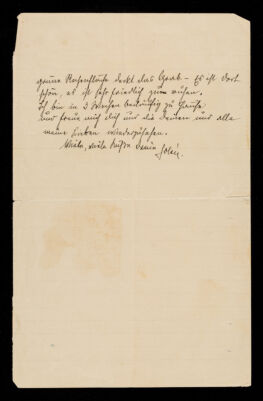 grüne Rasenfläche deckt das Grab – Es ist dort
schön, es ist sehr friedlich zum ruhen.
Ich bin in 3 Wochen zu Hause
und freue mich dich und die Deinen und alle
meine Lieben wiederzusehen.
Viele, viele Küsse Deine